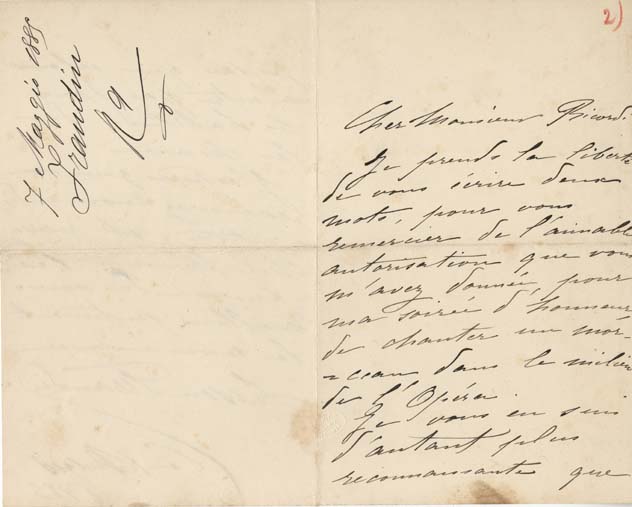 7 Maggio 1885
Frandin
Ra
2)
Cher Monsieur Ricordi
Je prends la liberté
de vous écrire deux
mots, pour vous
remercier de l'aimable
autorisation que vous
m'avez donnée, pour
ma soirée d'honneur
de chanter un mor-
=ceau dans le milieu
de l'Opéra.
Je vous en suis
d'autant plus
reconnaissante que